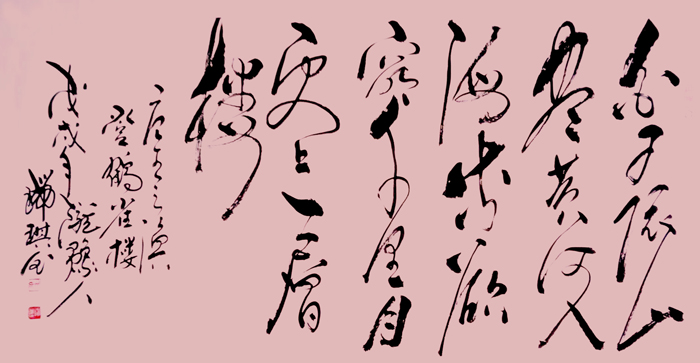 白日依山
尽黄河入
海流欲
穷千里目
更上一層
楼
唐王之涣
登鹳雀楼
戊戌年